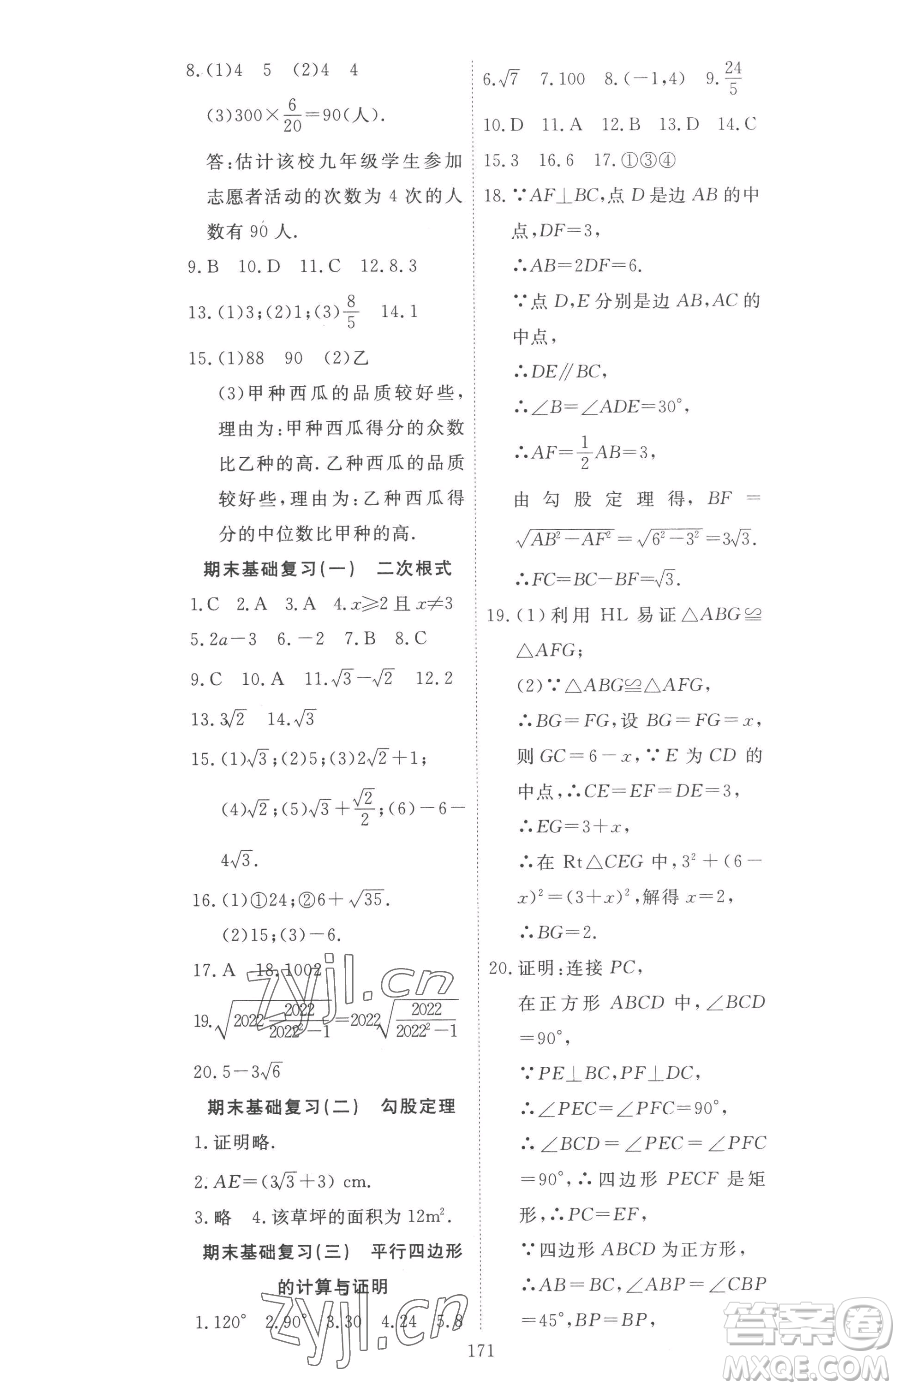 8.(1)4 5 (2)4 4
(3)300×6/20=90(人).
答:估计该校九年级学生参加
志愿者活动的次数为 4 次的人
数有 90 人.
9.B 10.D 11.C 12.8.3
13.(1)3;(2)1;(3)8/5 14.1
15.(1)88 90 (2)乙
(3)甲种西瓜的品质较好些,
理由为:甲种西瓜得分的众数
比乙种的高.乙种西瓜的品质
较好些,理由为:乙种西瓜得
分的中位数比甲种的高.
期末基础复习(一) 二次根式
1.C 2.A 3.A 4.x⩾2 且 x≠3
5.2a-3 6.-2 7.B 8.C
9.C 10.A 11.√3-√2 12.2
13.3√2 14.√3
15.(1)√3;(2)5;(3)2√2+1;
(4)√2;(5)√3+√2/2;(6)-6-
4√3.
16.(1)①24;②6+√35.
(2)15;(3)-6.
17.A 18.1002
19.√(2022 2022/(2022²-1))=2022√(2022/(2022²-1))
20.5-3√6
期末基础复习(二) 勾股定理
1.证明略.
2.AE=(3√3+3) cm.
3.略 4.该草坪的面积为 12m².
期末基础复习(三) 平行四边形
的计算与证明
1.120° 2.90° 3.30 4.24 5.8
6.√7 7.100 8.(-1,4) 9.24/5
10.D 11.A 12.B 13.D 14.C
15.3 16.6 17.①③④
18.∵AF⊥BC,点 D 是边 AB 的中
点,DF=3,
∴AB=2DF=6.
∵点 D,E 分别是边 AB,AC 的
中点,
∴DE∥BC,
∴∠B=∠ADE=30°,
∴AF=1/2AB=3,
由勾股定理得,BF=
√(AB²-AF²)=√(6²-3²)=3√3.
∴FC=BC-BF=√3.
19.(1)利用 HL 易证△ABG≌
△AFG;
(2)∵△ABG≌△AFG,
∴BG=FG,设 BG=FG=x,
则 GC=6-x,∵E 为 CD 的
中点,∴CE=EF=DE=3,
∴EG=3+x,
∴在 Rt△CEG 中,3²+(6-
x)²=(3+x)²,解得 x=2,
∴BG=2.
20.证明:连接 PC,
在正方形 ABCD 中,∠BCD
=90°,
∵PE⊥BC,PF⊥CD,
∴∠PEC=∠PFC=90°,
∴∠BCD=∠PEC=∠PFC
=90°,∴四边形 PECF 是矩
形,∴PC=EF,
∵四边形 ABCD 为正方形,
∴AB=BC,∠ABP=∠CBP
=45°,BP=BP,
171
zyjl.cn
zyjl.cn
答案圈
MXQE.COM